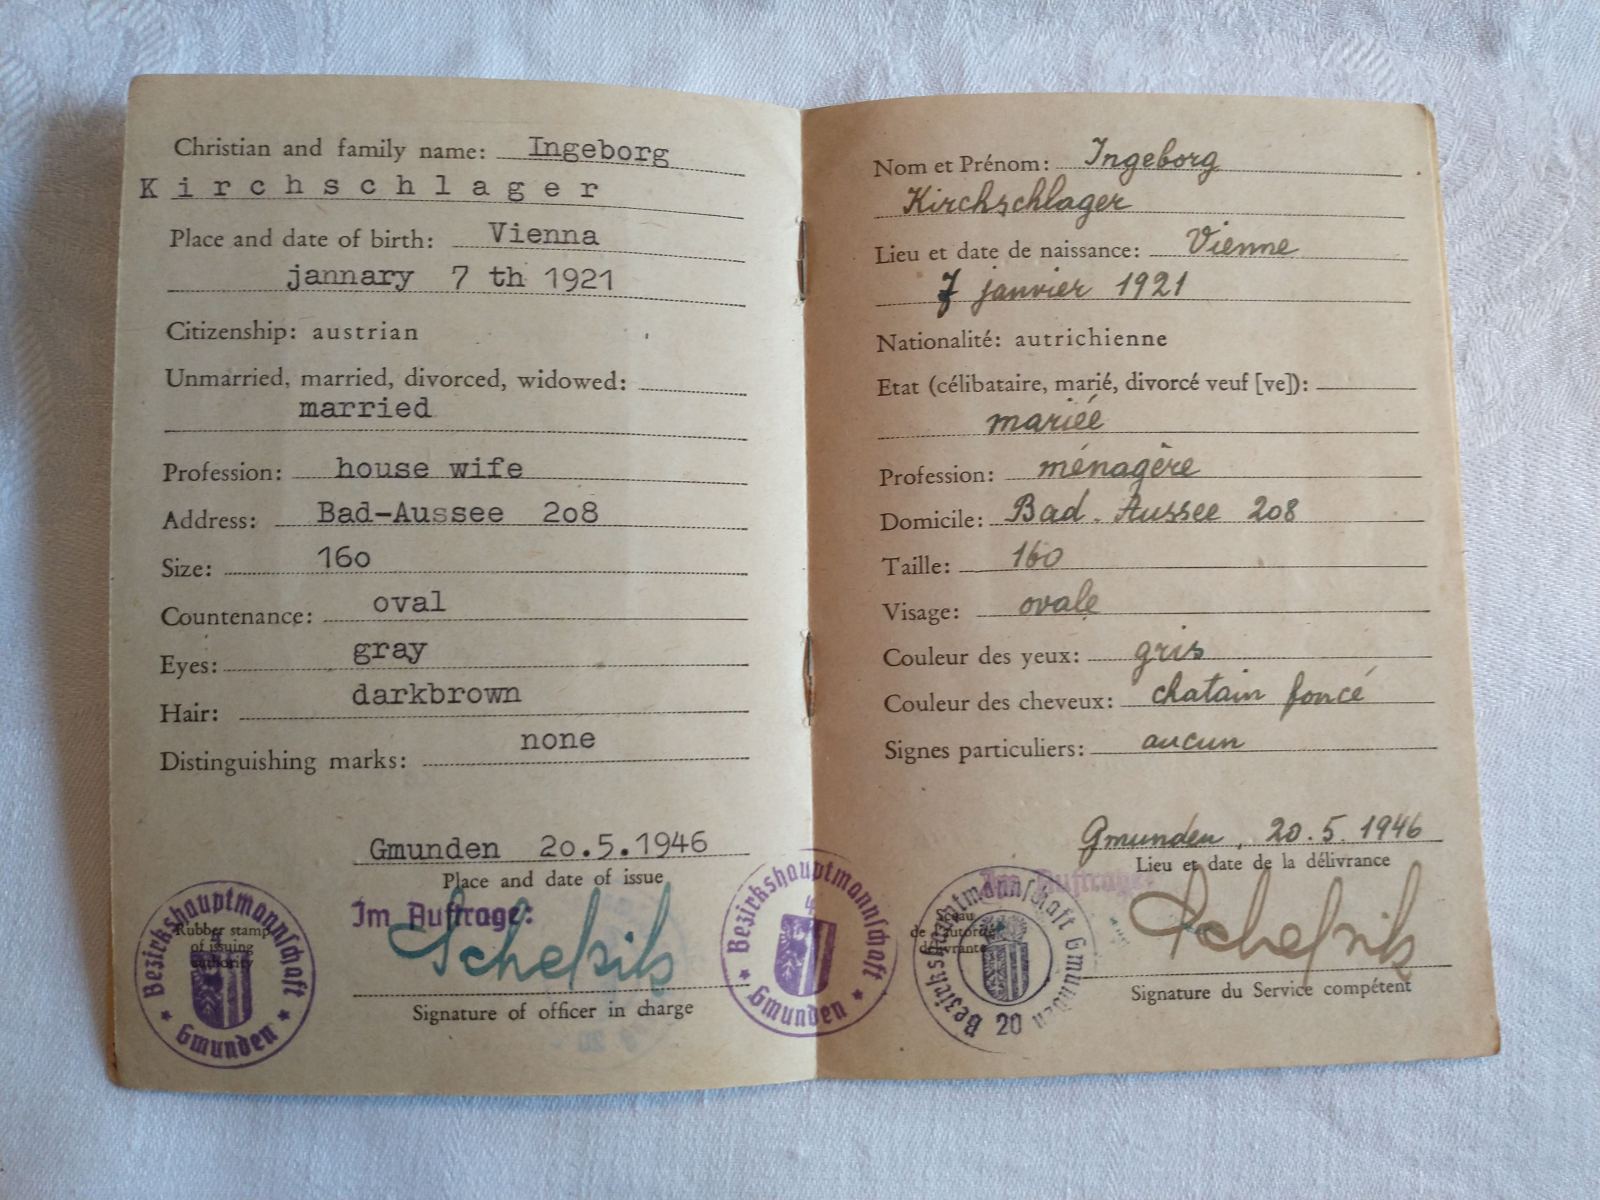 Christian and family name: Ingeborg
Kirchschlager
Place and date of birth: Vienna
jannary 7 th 1921
Citizenship: austrian
Unmarried, married, divorced, widowed:
married
Profession: house wife
Address: Bad-Aussee 208
Size: 160
Countenance: oval
Eyes: gray
Hair: darkbrown
Distinguishing marks: none
Gmunden 20.5.1946
Place and date of issue
Im Auftrage:
Rubber stamp
of issuing
authority
Bezirkshauptmannschaft
Gmunden
Signature of officer in charge
Bezirkshauptmannschaft
4
Gmunden
Nom et Prénom: Ingeborg
Kirchschlager
Lieu et date de naissance: Vienne
7 janvier 1921
Nationalité: autrichienne
Etat (célibataire, marié, divorcé veuf [ve]):
mariéé
Profession: ménagère
Domicile: Bad-Aussee 208
Taille: 160
Visage: ovale
Couleur des yeux: gris
Couleur des cheveux: chatain foncé
Signes particuliers: aucun
Gmunden, 20.5.1946
Lieu et date de la délivrance
Im Auftrage:
Sceau
de l'autorité
délivrante
Bezirkshauptmannschaft Gmunden
20
Signature du Service compétent